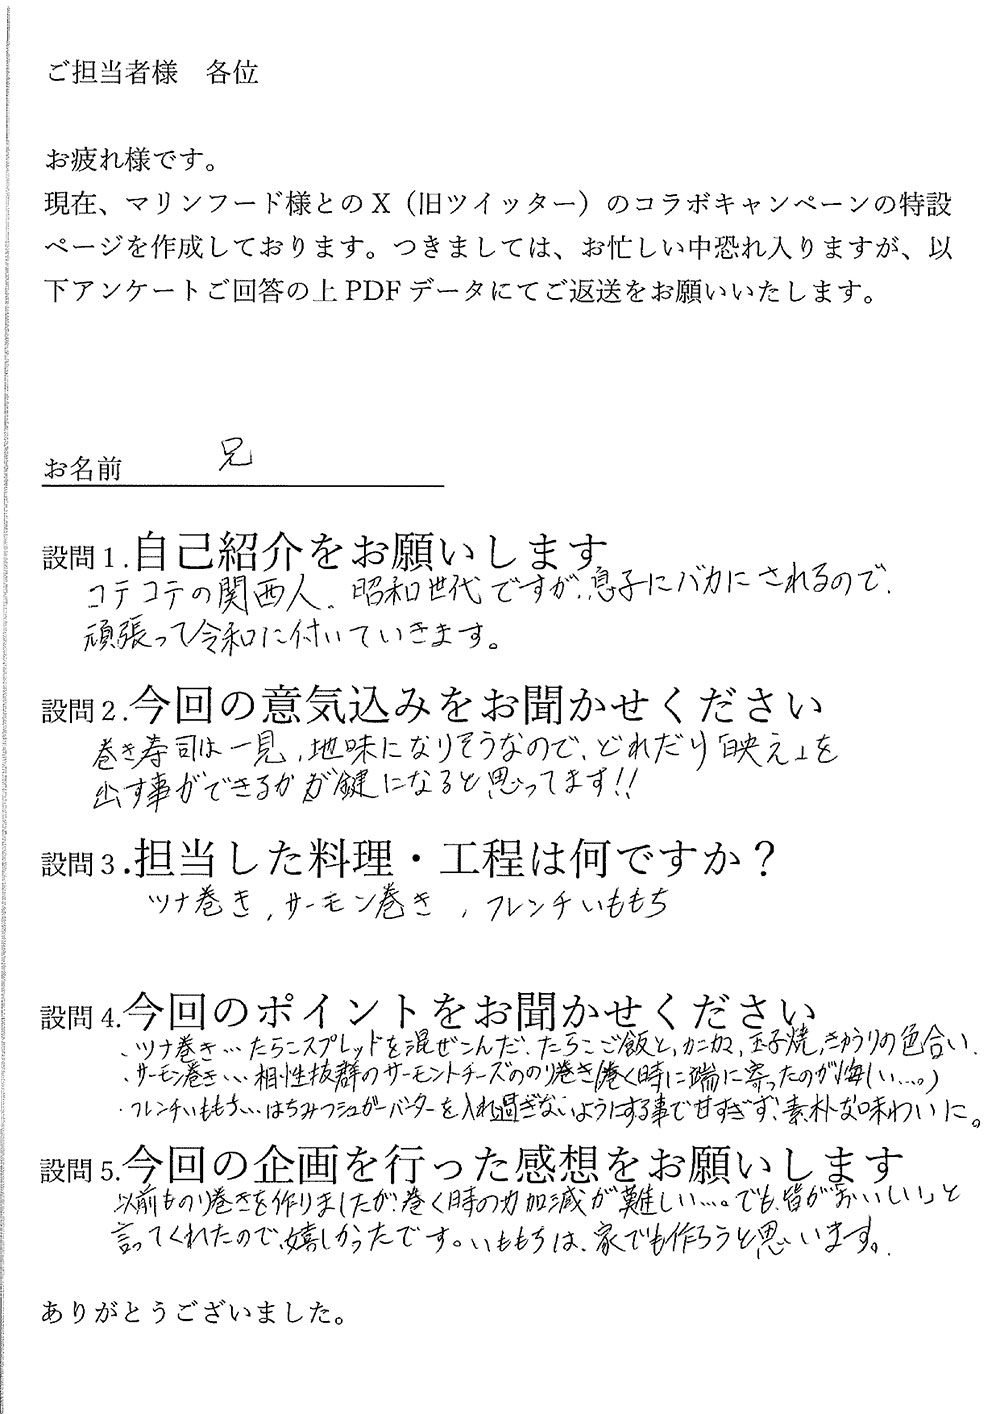 ご担当者様　各位
お疲れ様です。
現在、マリンフード様とのX（旧ツイッター）のコラボキャンペーンの特設
ページを作成しております。つきましては、お忙しい中恐れ入りますが、以
下アンケートご回答の上PDFデータにてご返送をお願いいたします。
お名前　兄
設問1.自己紹介をお願いします
コテコテの関西人。昭和世代ですが、息子にバカにされるので、
頑張って令和に付いていきます。
設問2.今回の意気込みをお聞かせください
巻き寿司は一見、地味になりそうなので、どれだけ「映え」を
出す事ができるかが鍵になると思ってます!!
設問3.担当した料理・工程は何ですか？
ツナ巻き、サーモン巻き、フレンチいももち
設問4.今回のポイントをお聞かせください
・ツナ巻き…たらこスプレッドを混ぜこんだ、たらこご飯と、カニカマ、玉子焼、きゅうりの色合い、
・サーモン巻き…相性抜群のサーモンとチーズののり巻き(巻く時に端に寄ったのが悔しい…。)
・フレンチいももち…はちみつシュガーバターを入れ過ぎないようにする事で甘すぎず、素朴な味わいに。
設問5.今回の企画を行った感想をお願いします
以前ものり巻きを作りましたが、巻く時の力加減が難しい…。でも、皆が「おいしい」と
言ってくれたので、嬉しかったです。いももちは、家でも作ろうと思います。
ありがとうございました。